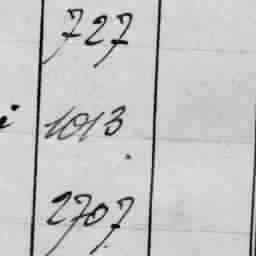 727
i 1013
2707